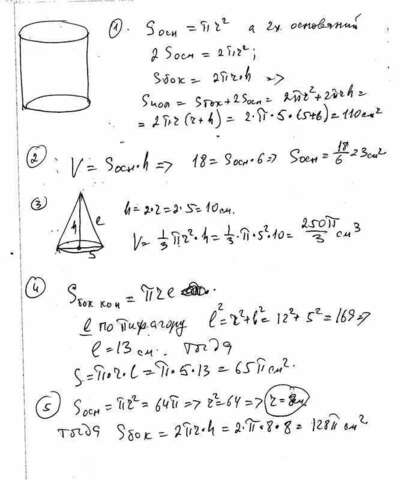 ① Sосн = πr² а 2х оснований
2 Sосн = 2πr²;
Sбок = 2πr·h =>
Sпол = Sбок+2Sосн = 2πr²+2πrh =
= 2πr(r+h) = 2·π·5·(5+6) = 110см²
② V = Sосн·h => 18 = Sосн·6 => Sосн = 18/6 = 3см²
③ h = 2·r = 2·5 = 10см.
h l
5
V = 1/3 πr²·h = 1/3·π·5²·10 = 250π/3 см³
④ Sбок кон = πrl
l по пифагору l² = r²+h² = 12²+5² = 169 =>
l = 13 см. тогда
S = π·r·l = π·5·13 = 65π см².
⑤ Sосн = πr² = 64π => r² = 64 => r = 8см
тогда Sбок = 2πr·h = 2·π·8·8 = 128π см²